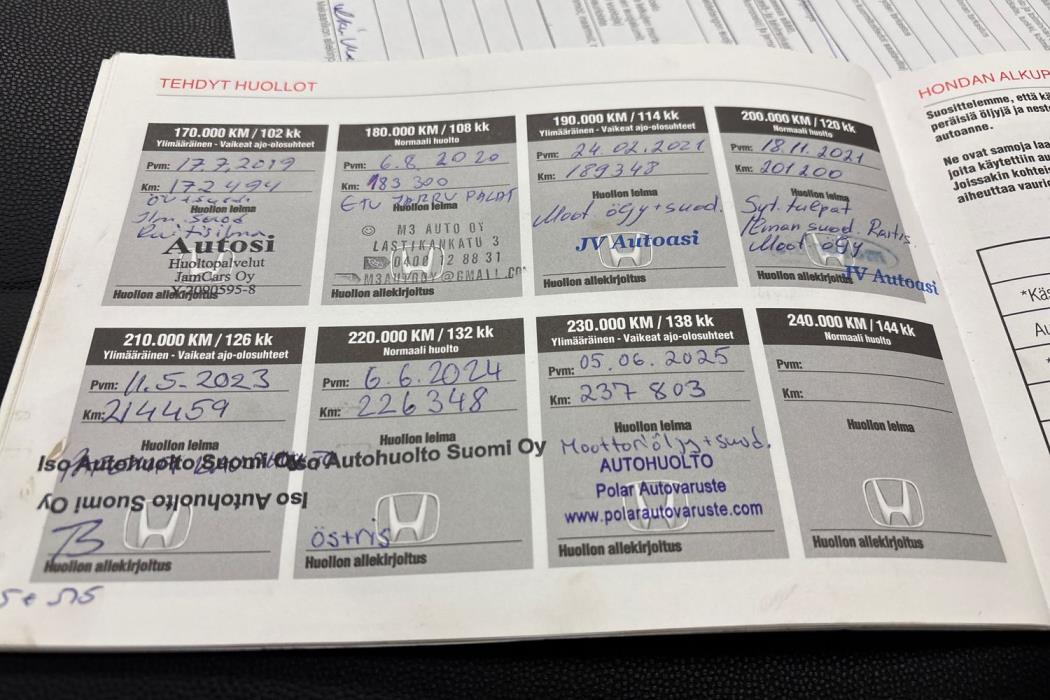 TEHDYT HUOLLOT
170.000 KM / 102 kk
Ylimääräinen - Vaikeat ajo-olosuhteet
Pvm: 17.7.2019
Km: 172494
Huollon leima
Autosi
Huoltopalvelut
JamCars Oy
Y-2090595-8
Huollon allekirjoitus
180.000 KM / 108 kk
Normaali huolto
Pvm: 6.8. 2020
Km: 183 300
ETU JARRU PALAT
Huollon leima
M3 AUTO OY
LASTIKANKATU 3
0408 12 88 31
M3AUTOOY@GMAIL.CO
Huollon allekirjoitus
190.000 KM / 114 kk
Ylimääräinen - Vaikeat ajo-olosuhteet
Pvm: 24.02.2021
Km: 189348
Huollon leima
Moot öljy + suod.
JV Autoasi
Huollon allekirjoitus
200.000 KM / 120 kk
Normaali huolto
Pvm: 18.11.2021
Km: 201200
Huollon leima
Syt. tulpat
Ilman suod. Raitis.
Moot öljy
JV Autoasi
Huollon allekirjoitus
210.000 KM / 126 kk
Ylimääräinen - Vaikeat ajo-olosuhteet
Pvm: 11.5-2023
Km: 214459
Huollon leima
Iso Autohuolto Suomi Oy
Iso Autohuolto Suomi Oy
Huollon allekirjoitus
220.000 KM / 132 kk
Normaali huolto
Pvm: 6.6.2024
Km: 226348
Huollon leima
Iso Autohuolto Suomi Oy
östris
Huollon allekirjoitus
230.000 KM / 138 kk
Ylimääräinen - Vaikeat ajo-olosuhteet
Pvm: 05.06.2025
Km: 237 803
Huollon leima
Moottoriöljy + suod.
AUTOHUOLTO
Polar Autovaruste
www.polarautovaruste.com
Huollon allekirjoitus
240.000 KM / 144 kk
Normaali huolto
Pvm:
Km:
Huollon leima
Huollon allekirjoitus
HONDAN ALKUP
Suosittelemme, että kä
peräisiä öljyjä ja nest
autoanne.
Ne ovat samoja laa
joita käytettiin au
Joissakin kohteis
aiheuttaa vaurin
*Käs